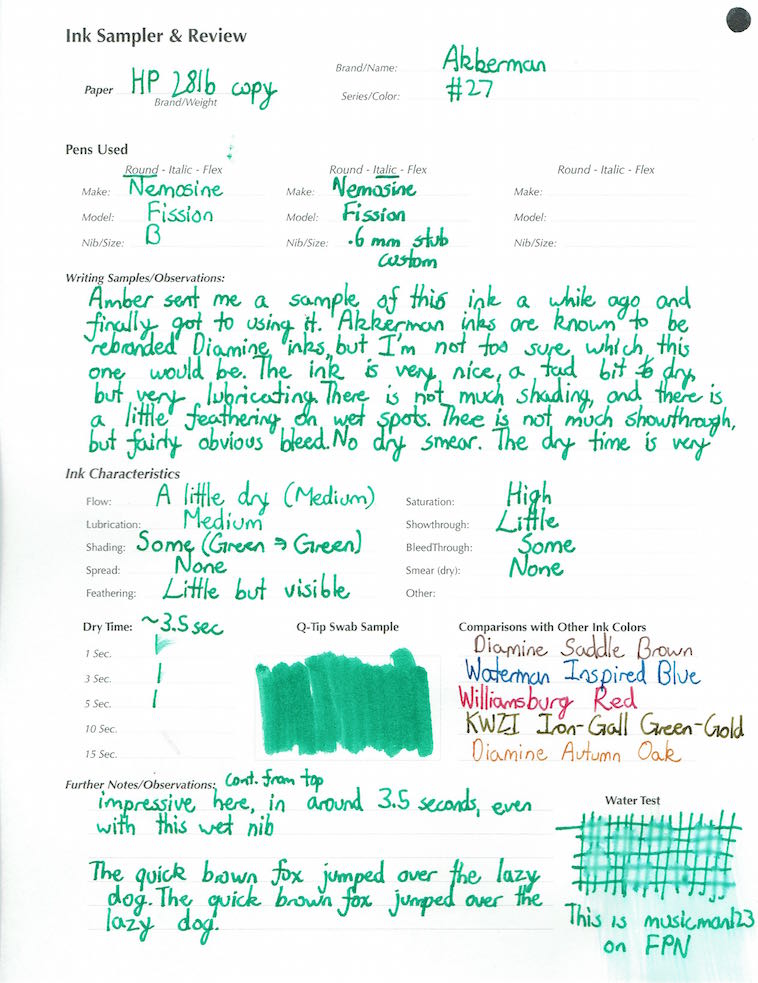 Ink Sampler & Review
Paper HP 28lb copy
Brand/Weight
Brand/Name: Akkerman
Series/Color: #27
Pens Used
Round - Italic - Flex Round - Italic - Flex Round - Italic - Flex
Make: Nemosine Make: Nemosine Make:
Model: Fission Model: Fission Model:
Nib/Size: B Nib/Size: .6 mm stub Nib/Size:
custom
Writing Samples/Observations:
Amber sent me a sample of this ink a while ago and
finally got to using it. Akkerman inks are known to be
rebranded Diamine inks, but I'm not too sure which this
one would be. The ink is very nice, a tad bit to dry,
but very lubricating. There is not much shading, and there is
a little feathering on wet spots. There is not much showthrough,
but fairly obvious bleed. No dry smear. The dry time is very
Ink Characteristics
Flow: A little dry (Medium) Saturation: High
Lubrication: Medium Showthrough: Little
Shading: Some (Green → Green) BleedThrough: Some
Spread: None Smear (dry): None
Feathering: Little but visible Other:
Dry Time: ~3.5 sec
1 Sec.
3 Sec.
5 Sec.
10 Sec.
15 Sec.
Q-Tip Swab Sample
Comparisons with Other Ink Colors
Diamine Saddle Brown
Waterman Inspired Blue
Williamsburg Red
KWZI Iron-Gall Green-Gold
Diamine Autumn Oak
Further Notes/Observations: Cont. from top
impressive here, in around 3.5 seconds, even
with this wet nib
The quick brown fox jumped over the lazy
dog. The quick brown fox jumped over the
lazy dog.
Water Test
This is musicman123
on FPN